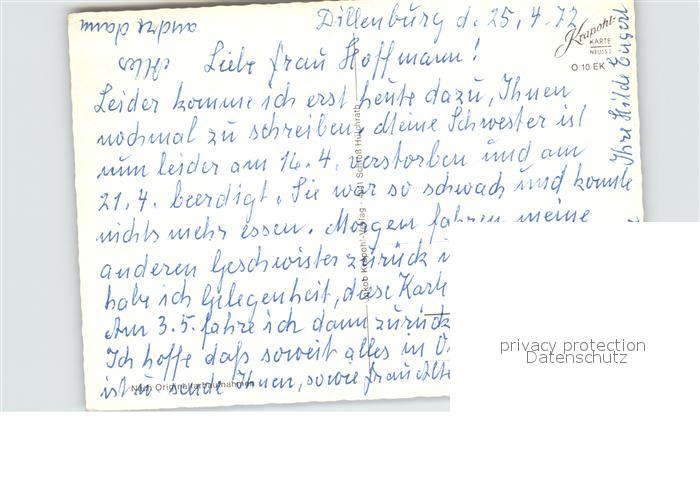 Dillenburg d. 25.4.72
Liebe Frau Hoffmann!
Leider komme ich erst heute dazu, Ihnen
nochmal zu schreiben. Meine Schwester ist
nun leider am 14.4. verstorben und am
21.4. beerdigt. Sie war so schwach und konnte
nichts mehr essen. Morgen fahren meine
anderen Geschwister zurück
habe ich Gelegenheit, diese Karte
Am 3.5. fahre ich dann zurück
Ich hoffe daß soweit alles in
ist u. sende Ihnen, sowie Frau
Ihre Hilde
alles
andre dann
Krapohl-
KARTE
NEUSS 2
O 10 EK
Jakob Krapohl-Verlag - Schloß Hülchrath
Nach Originalfarbaufnahmen
privacy protection
Datenschutz